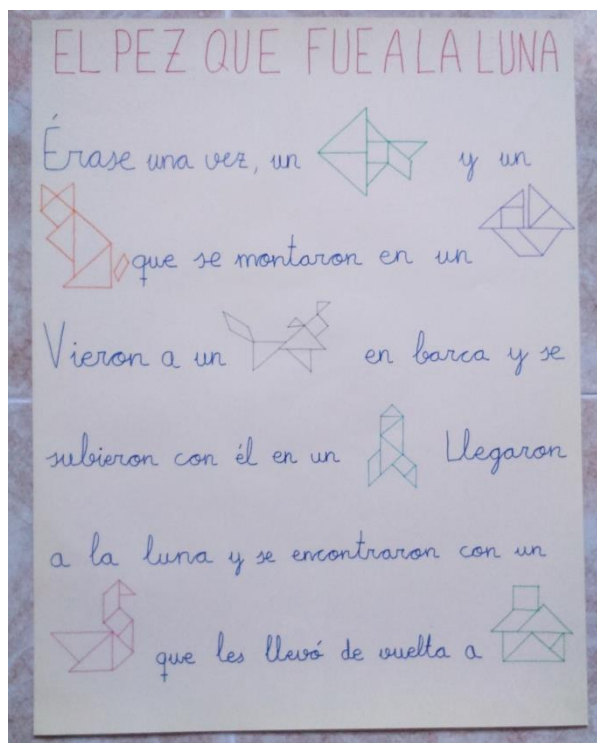 EL PEZ QUE FUE A LA LUNA
Érase una vez, un y un
que se montaron en un
Vieron a un en barca y se
subieron con él en un Llegaron
a la luna y se encontraron con un
que les llevó de vuelta a